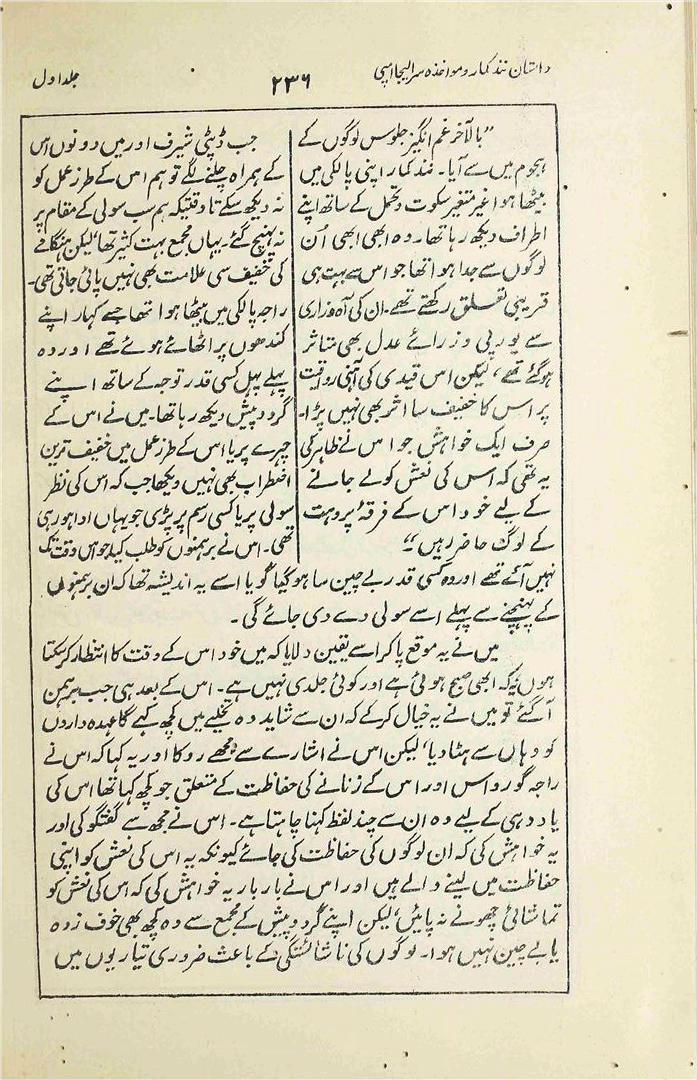 داستان نند کمار و مواخذہ سر الیجا امپی
۲۳۶
جلد اول
"بالآخر غم انگیز جلوس لوگوں کے
ہجوم میں سے آیا۔ نند کمار اپنی پالکی میں
بیٹھا ہوا غیر متغیر سکوت و تحمل کے ساتھ اپنے
اطراف دیکھ رہا تھا۔ وہ ابھی ابھی اُن
لوگوں سے جدا ہوا تھا جو اس سے بہت ہی
قریبی تعلق رکھتے تھے۔ ان کی آہ وزاری
سے یورپی وزرائے عدل بھی متاثر
ہو گئے تھے، لیکن اس قیدی کی آہنی رواقیت
پر اس کا خفیف سا اثر بھی نہیں پڑا۔
صرف ایک خواہش جو اس نے ظاہر کی
یہ تھی کہ اس کی نعش کو لے جانے
کے لیے خود اس کے فرقۂ پروہت
کے لوگ حاضر رہیں"۔
جب ڈپٹی شیرف اور میں دونوں اس
کے ہمراہ چلنے لگے تو ہم اس کے طرز عمل کو
نہ دیکھ سکے تا وقتیکہ ہم سب سولی کے مقام پر
نہ پہنچ گئے۔ یہاں مجمع بہت کثیر تھا، لیکن ہنگامے
کی خفیف سی علامت بھی نہیں پائی جاتی تھی۔
راجہ پالکی میں بیٹھا ہوا تھا جسے کہار اپنے
کندھوں پر اٹھائے ہوئے تھے اور وہ
پہلے پہل کسی قدر توجہ کے ساتھ اپنے
گرد و پیش دیکھ رہا تھا۔ میں نے اس کے
چہرے پر یا اس کے طرز عمل میں خفیف ترین
اضطراب بھی نہیں دیکھا جب کہ اس کی نظر
سولی پر یا کسی رسم پر پڑی جو یہاں ادا ہو رہی
تھی۔ اس نے برہمنوں کو طلب کیا جو اس وقت تک
نہیں آئے تھے اور وہ کسی قدر بے چین سا ہو گیا گویا اسے یہ اندیشہ تھا کہ ان برہمنوں
کے پہنچنے سے پہلے اسے سولی دے دی جائے گی۔
میں نے یہ موقع پا کر اسے یقین دلایا کہ میں خود اس کے وقت کا انتظار کر سکتا
ہوں کیونکہ ابھی صبح ہوئی ہے اور کوئی جلدی نہیں ہے۔ اس کے بعد ہی جب برہمن
آ گئے تو میں نے یہ خیال کر کے کہ ان سے شاید وہ تخلیے میں کچھ کہے گا عہدہ داروں
کو وہاں سے ہٹا دیا، لیکن اس نے اشارے سے مجھے روکا اور یہ کہا کہ اس نے
راجہ گورواس اور اس کے زنانے کی حفاظت کے متعلق جو کچھ کہا تھا اس کی
یاد دہی کے لیے وہ ان سے چند لفظ کہنا چاہتا ہے۔ اس نے مجھ سے گفتگو کی اور
یہ خواہش کی کہ ان لوگوں کی حفاظت کی جائے کیونکہ یہ اس کی نعش کو اپنی
حفاظت میں لینے والے ہیں اور اس نے بار بار یہ خواہش کی کہ اس کی نعش کو
تماشائی چھونے نہ پائیں، لیکن اپنے گرد و پیش کے مجمع سے وہ کچھ بھی خوف زدہ
یا بے چین نہیں ہوا۔ لوگوں کی ناشائستگی کے باعث ضروری تیاریوں میں